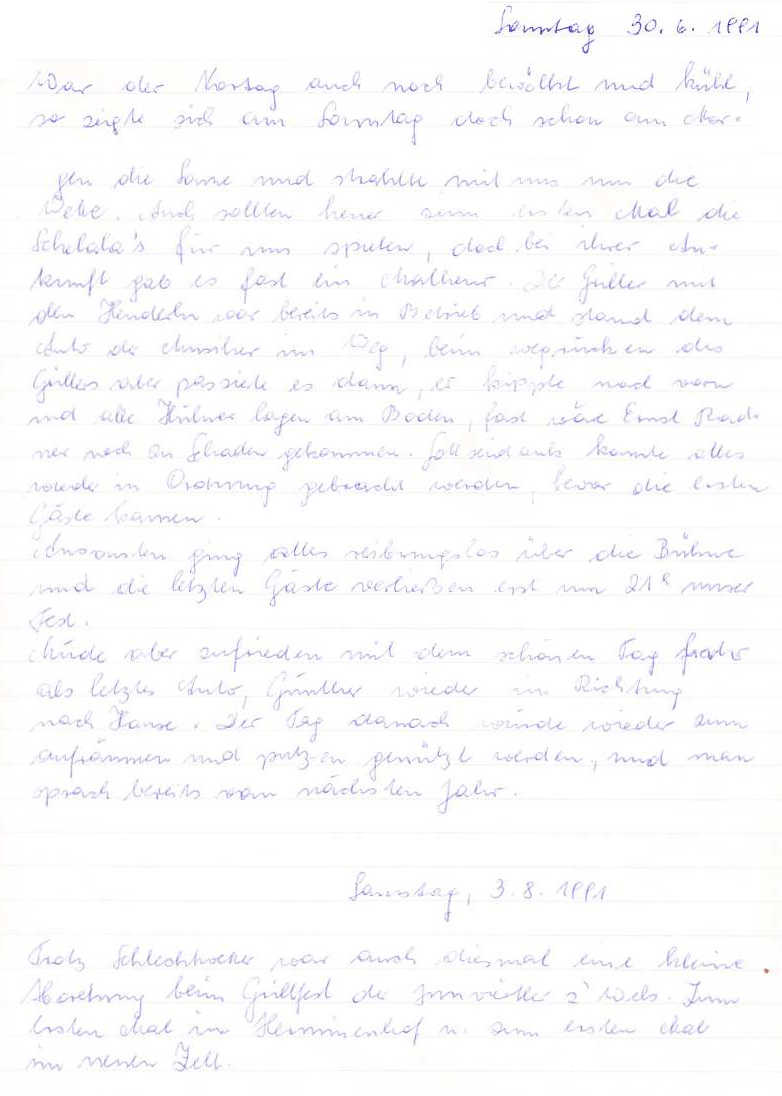 Sonntag 30. 6. 1991
War der Vortag auch noch bewölkt und kühl,
so zeigte sich am Sonntag doch schon am Mor-
gen die Sonne und strahlte mit uns um die
Wette. Auch sollten heuer zum ersten Mal die
für uns spielen, doch bei ihrer An-
kunft gab es fast ein Malheur. Der Griller mit
den Henderln war bereits in Betrieb und stand dem
Auto der Musiker im Weg, beim wegrücken des
Grillers aber passierte es dann, er kippte nach vorn
und alle Hühner lagen am Boden, fast wäre Ernst
noch zu Schaden gekommen. Gott sei dank konnte alles
wieder in Ordnung gebracht werden, bevor die ersten
Gäste kamen.
Ansonsten ging alles reibungslos über die Bühne
und die letzten Gäste verließen erst um 21 unser
Fest.
Müde aber zufrieden mit dem schönen Tag fuhr
als letztes Auto, Günther wieder in Richtung
nach Hause. Der Tag danach wurde wieder zum
aufräumen und putzen genützt werden, und man
sprach bereits vom nächsten Jahr.
Samstag, 3. 8. 1991
Trotz Schlechtwetter war auch diesmal eine kleine
Abordnung beim Grillfest der Innviertler z' Wels. Zum
ersten Mal im u. zum ersten Mal
im neuen Zelt.